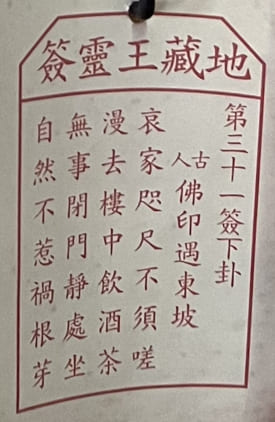 地藏王靈簽
第三十一簽下卦
古人佛印遇東坡
哀家咫尺不須嗟
漫去樓中飲酒茶
無事閉門靜處坐
自然不惹禍根芽